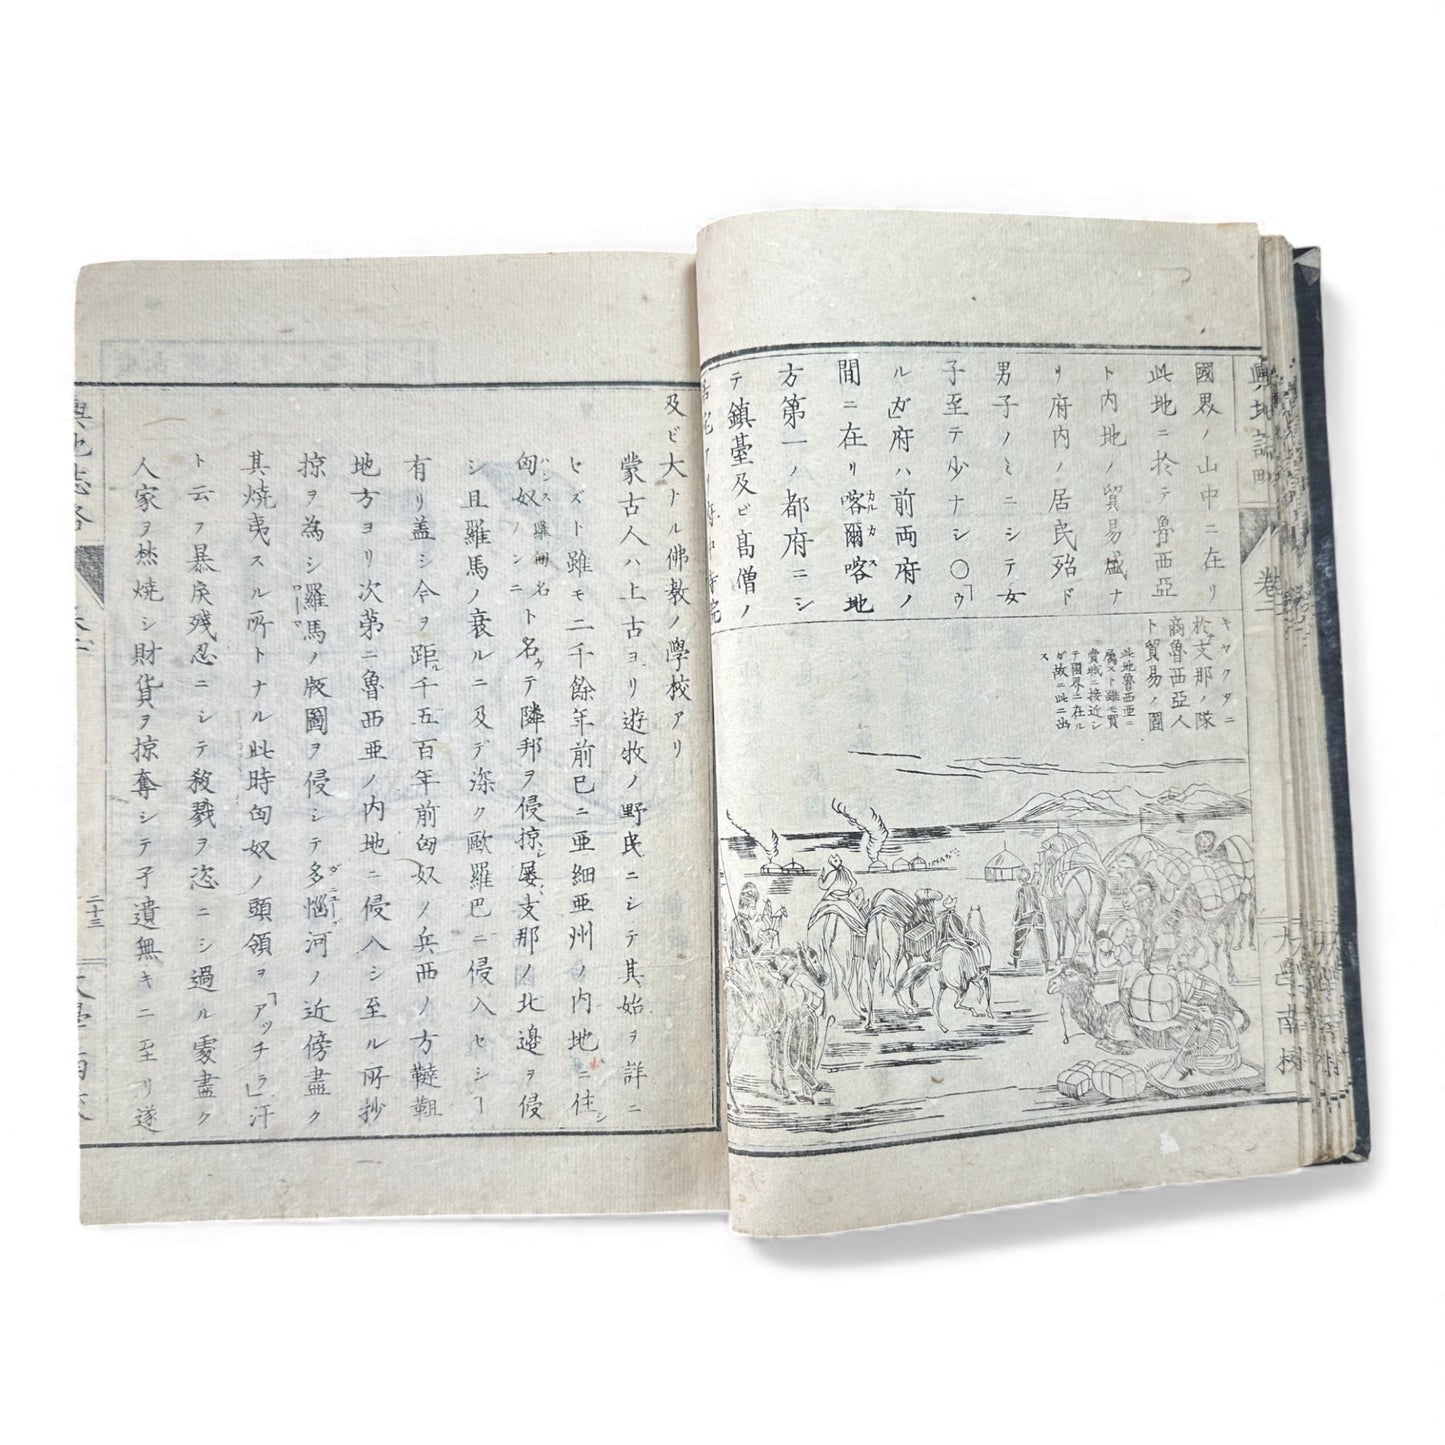 輿地誌畧
卷二
大學南校
國界ノ山中ニ在リ
此地ニ於テ魯西亞
ト内地ノ貿易盛ナ
リ府内ノ居民殆ド
男子ノミニシテ女
子至テ少ナシ〇「ウ
ルガ」府ハ前両府ノ
間ニ在リ喀爾喀地
カルカス
方第一ノ都府ニシ
テ鎮臺及ビ高僧ノ
キャクタニ
於テ支那ノ隊
商魯西亞人
ト貿易ノ圖
此地魯西亜ニ
屬スト雖モ買
賣城ニ接近シ
テ國界ニ在ル
ガ故ニ此ニ出
ス
及ビ大ナル佛教ノ學校アリ
蒙古人ハ上古ヨリ遊牧ノ野民ニシテ其始ヲ詳ニ
セズト雖モ二千餘年前已ニ亜細亜州ノ内地ニ住シ
匈奴ノンニト名ケテ隣邦ヲ侵掠シ屡〻支那ノ北邊ヲ侵
ハンス 羅甸名
シ且羅馬ノ衰ルニ及デ深ク歐羅巴ニ侵入セシヿ
有リ蓋シ今ヲ距ル千五百年前匈奴ノ兵西ノ方韃靼
地方ヨリ次第ニ魯西亜ノ内地ニ侵入シ至ル所抄
掠ヲ為シ羅馬ノ版圖ヲ侵シテ多惱河ノ近傍盡ク
ローマ
ダニューブ
其燒夷スル所トナル此時匈奴ノ頭領ヲ「アッチラ」汗
ト云フ暴戻残忍ニシテ殺戮ヲ恣ニシ過ル處盡ク
人家ヲ焚燒シ財貨ヲ掠奪シテ孑遺無キニ至リ遂
二十三